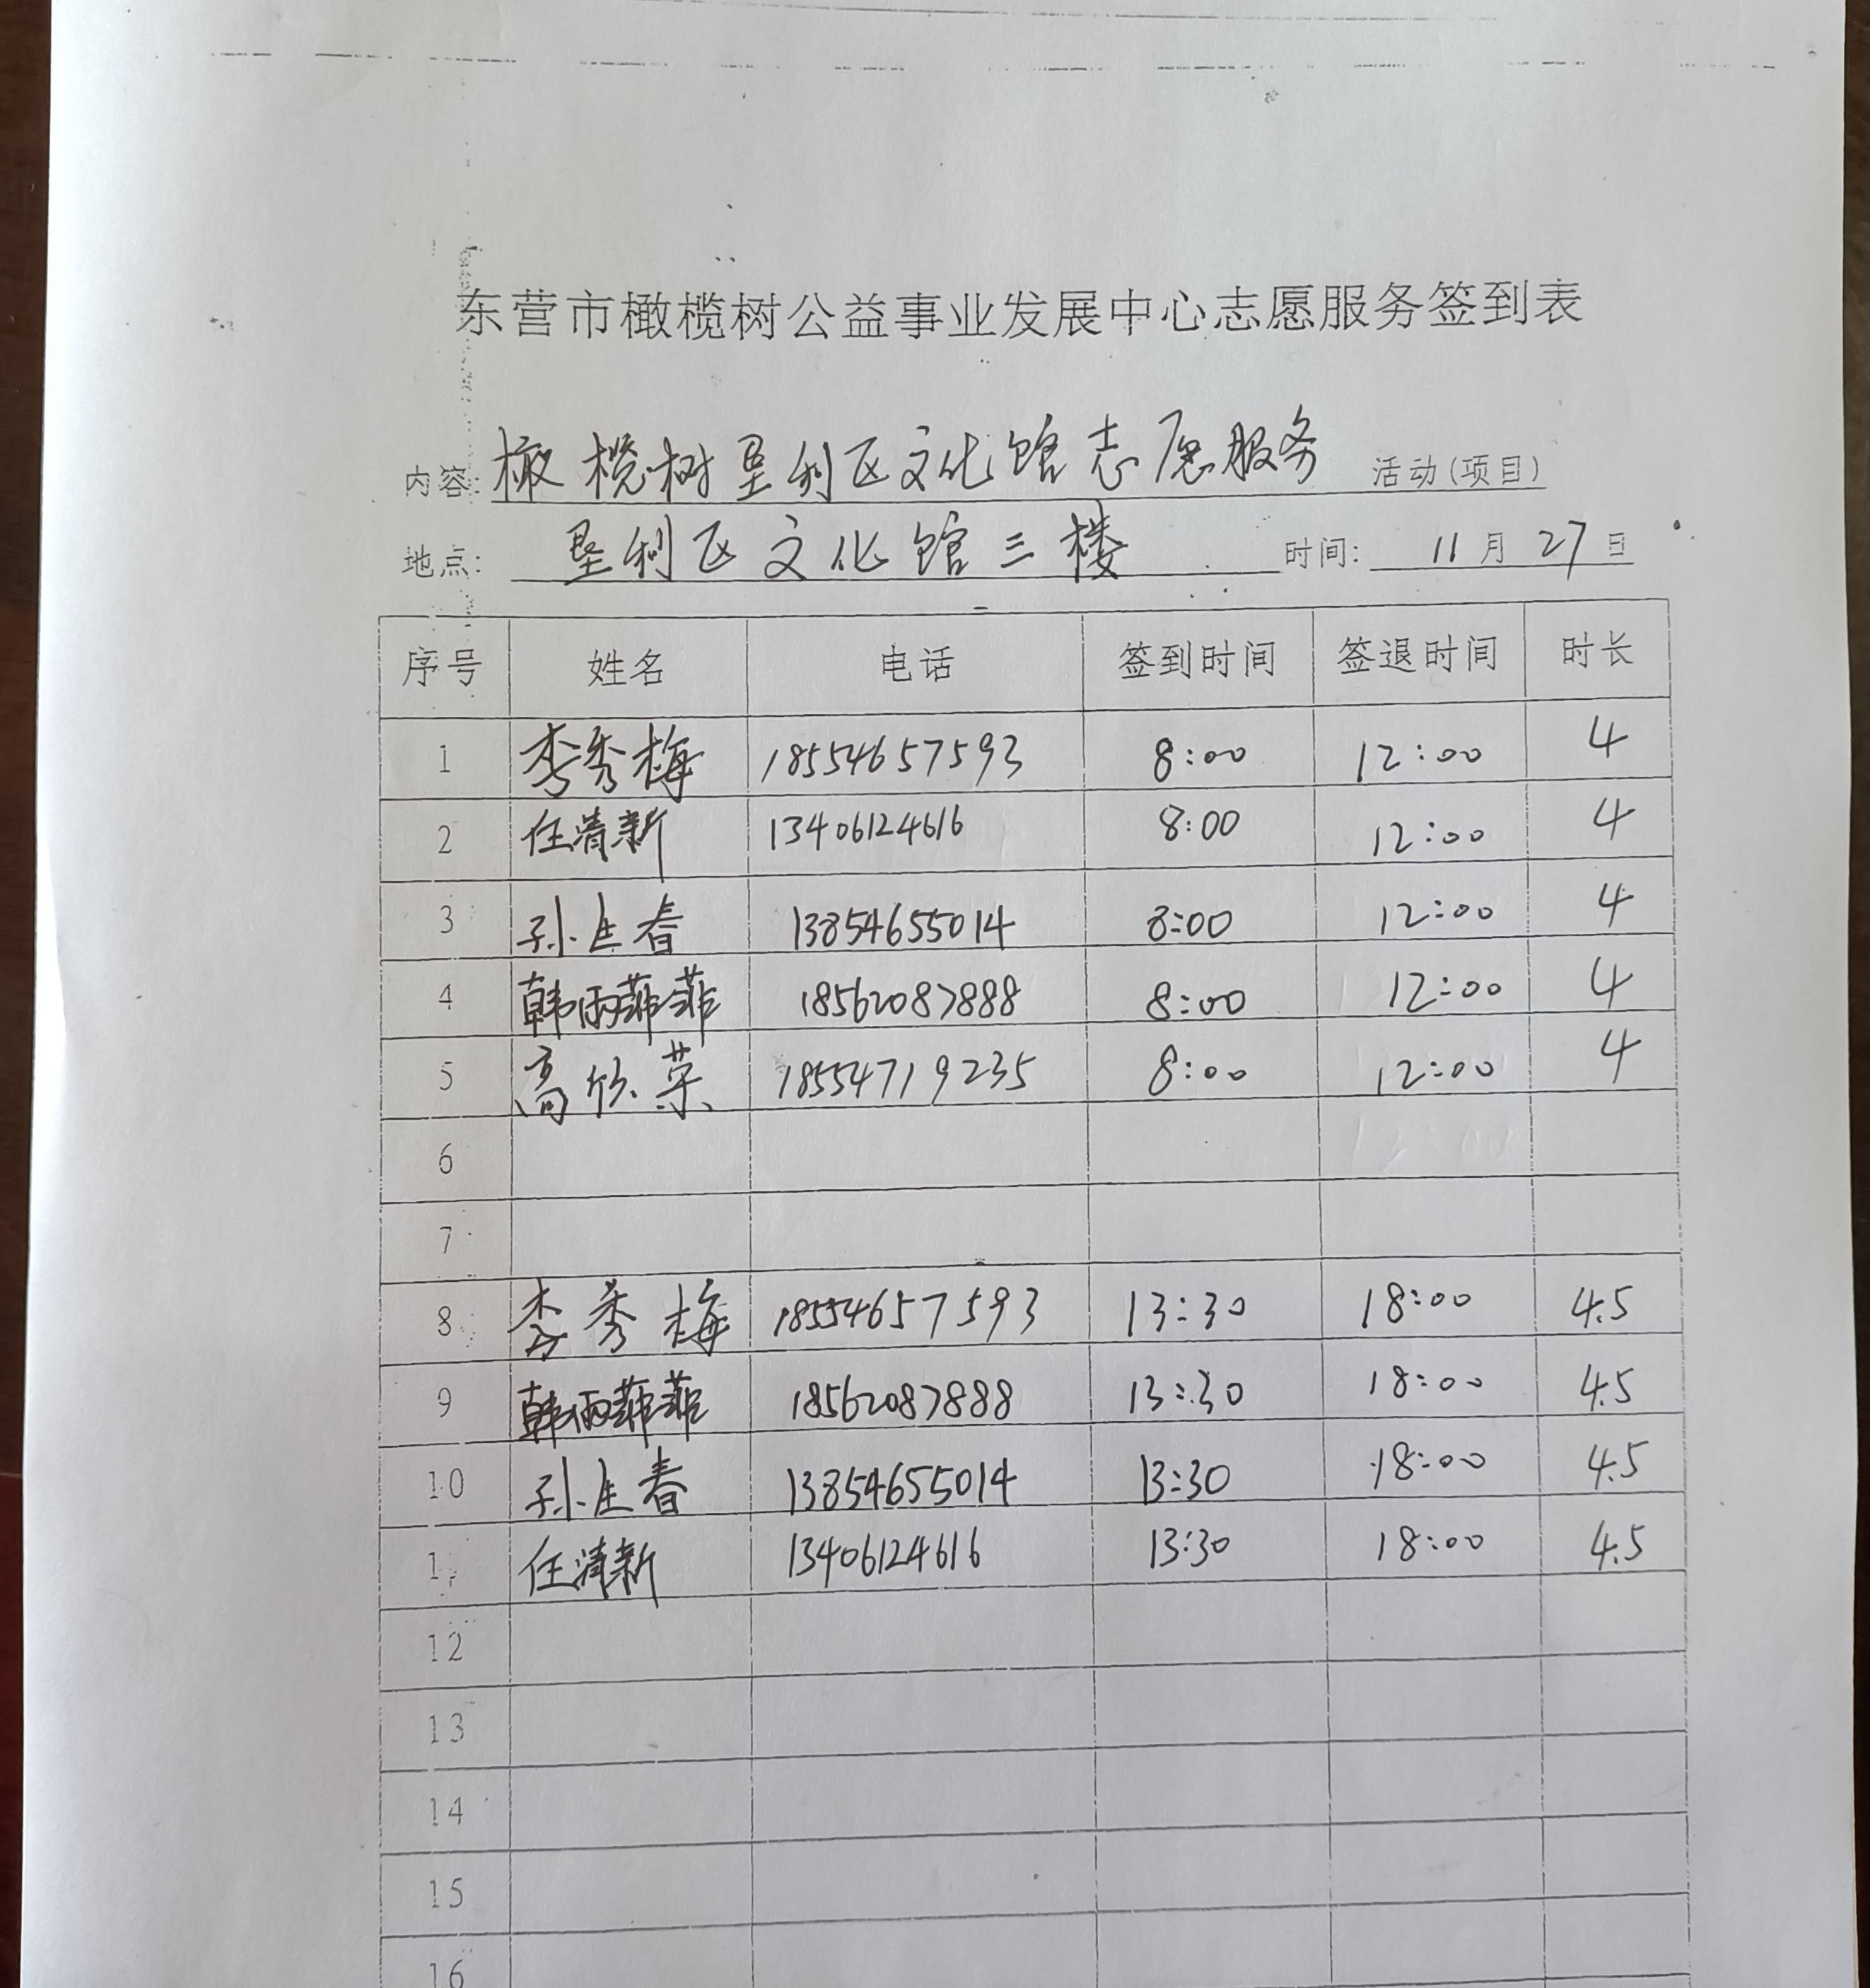 东营市橄榄树公益事业发展中心志愿服务签到表
内容: 橄榄树垦利区文化馆志愿服务 活动(项目)
地点: 垦利区文化馆三楼 时间: 11月27日
序号 姓名 电话 签到时间 签退时间 时长
1 李秀梅 18554657593 8:00 12:00 4
2 任清新 13406124616 8:00 12:00 4
3 孙生春 13854655014 8:00 12:00 4
4 韩雨菲菲 18562087888 8:00 12:00 4
5 高欣荣 18554719235 8:00 12:00 4
6
7
8 李秀梅 18554657593 13:30 18:00 4.5
9 韩雨菲菲 18562087888 13:30 18:00 4.5
10 孙生春 13854655014 13:30 18:00 4.5
1 任清新 13406124616 13:30 18:00 4.5
12
13
14
15
16